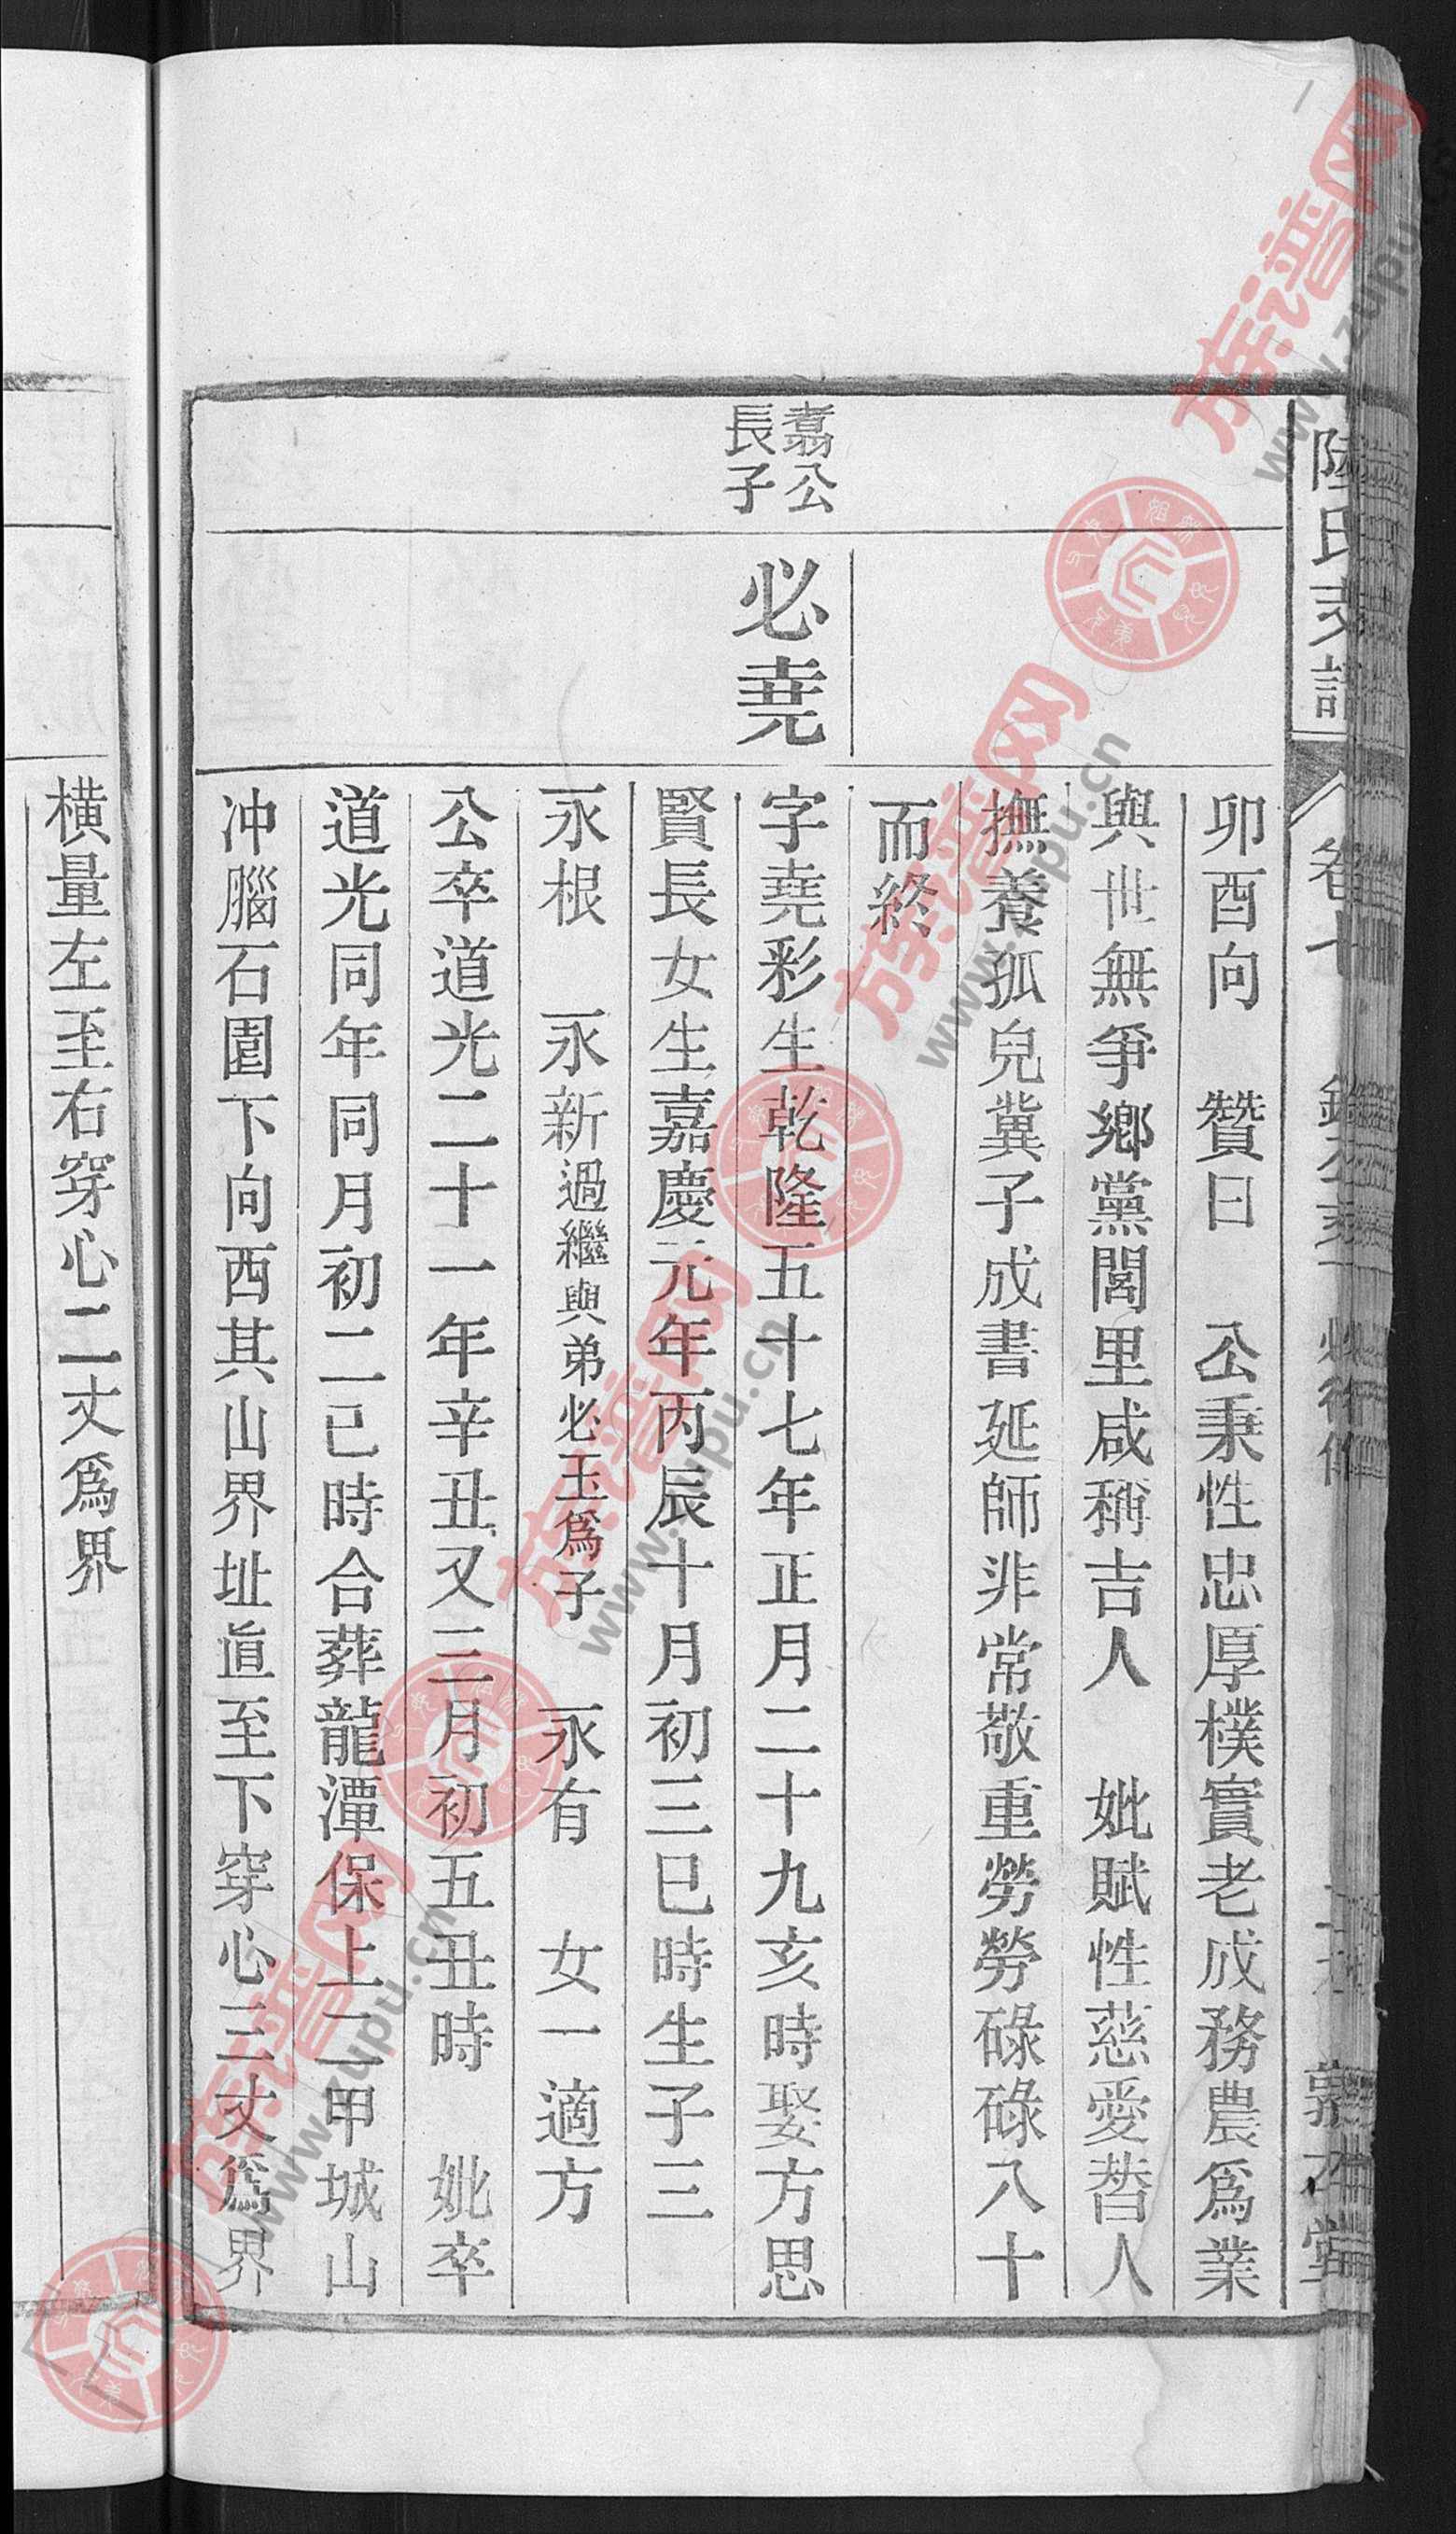 陸氏支譜
卯酉向　贊曰　公秉性忠厚樸實老成務農爲業
與世無爭鄉黨閭里咸稱吉人　妣賦性慈愛替人
撫養孤兒冀子成書延師非常敬重勞勞碌碌八十
而終
翥公
長子
必堯
字堯彩生乾隆五十七年正月二十九亥時娶方思
賢長女生嘉慶元年丙辰十月初三巳時生子三
永根　永新過繼與弟必玉爲子　永有　女一適方
公卒道光二十一年辛丑又三月初五丑時　妣卒
道光同年同月初二巳時合葬龍潭保上二甲城山
冲腦石園下向西其山界址直至下穿心三丈爲界
橫量左至右穿心二丈爲界
族谱网
www.zupu.cn
族谱网
www.zupu.cn
族谱网
www.zupu.cn
族谱网
www.zupu.cn